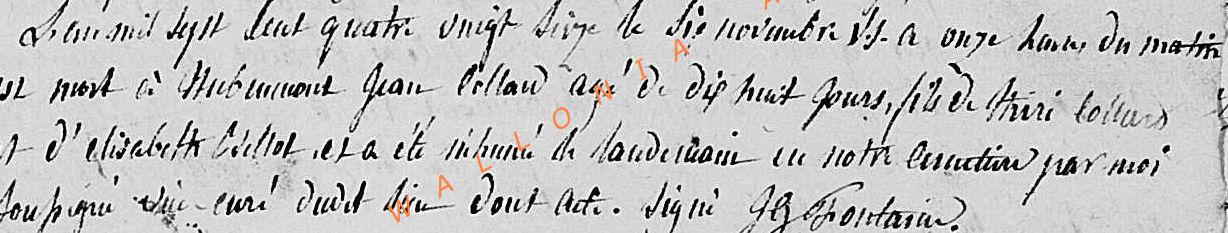 L'an mil sept cent quatre vingt seize le six novembre v.s. a onze heures du matin
est mort à Nubeumont Jean Collard agé de dix huit jours, fils de Henri Collard
et d'elisabeth Gillot, et a été inhumé le landemain en notre cimetiere par moi
soussigné curé dudit lieu dont acte. signé JG Fontaine.
WALLONIA